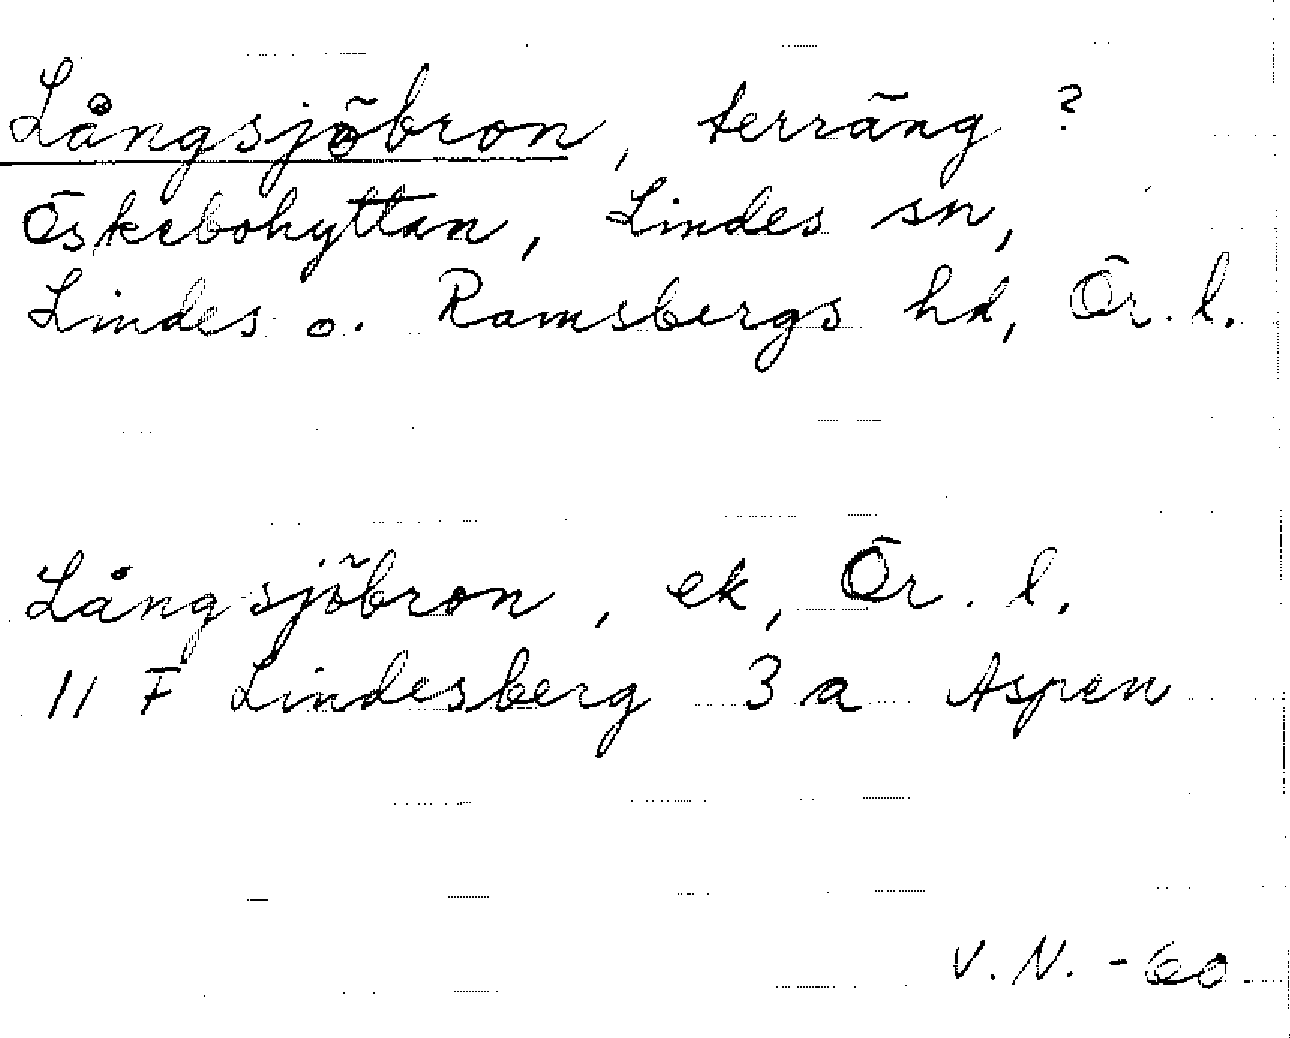 Långsjöbron, terräng ?
Öskebohyttan, Lindes sn,
Lindes o. Ramsbergs hd, Ör. l.
Långsjöbron, ek, Ör. l.
11 F Lindesberg 3 a Aspen
V. N. - 60